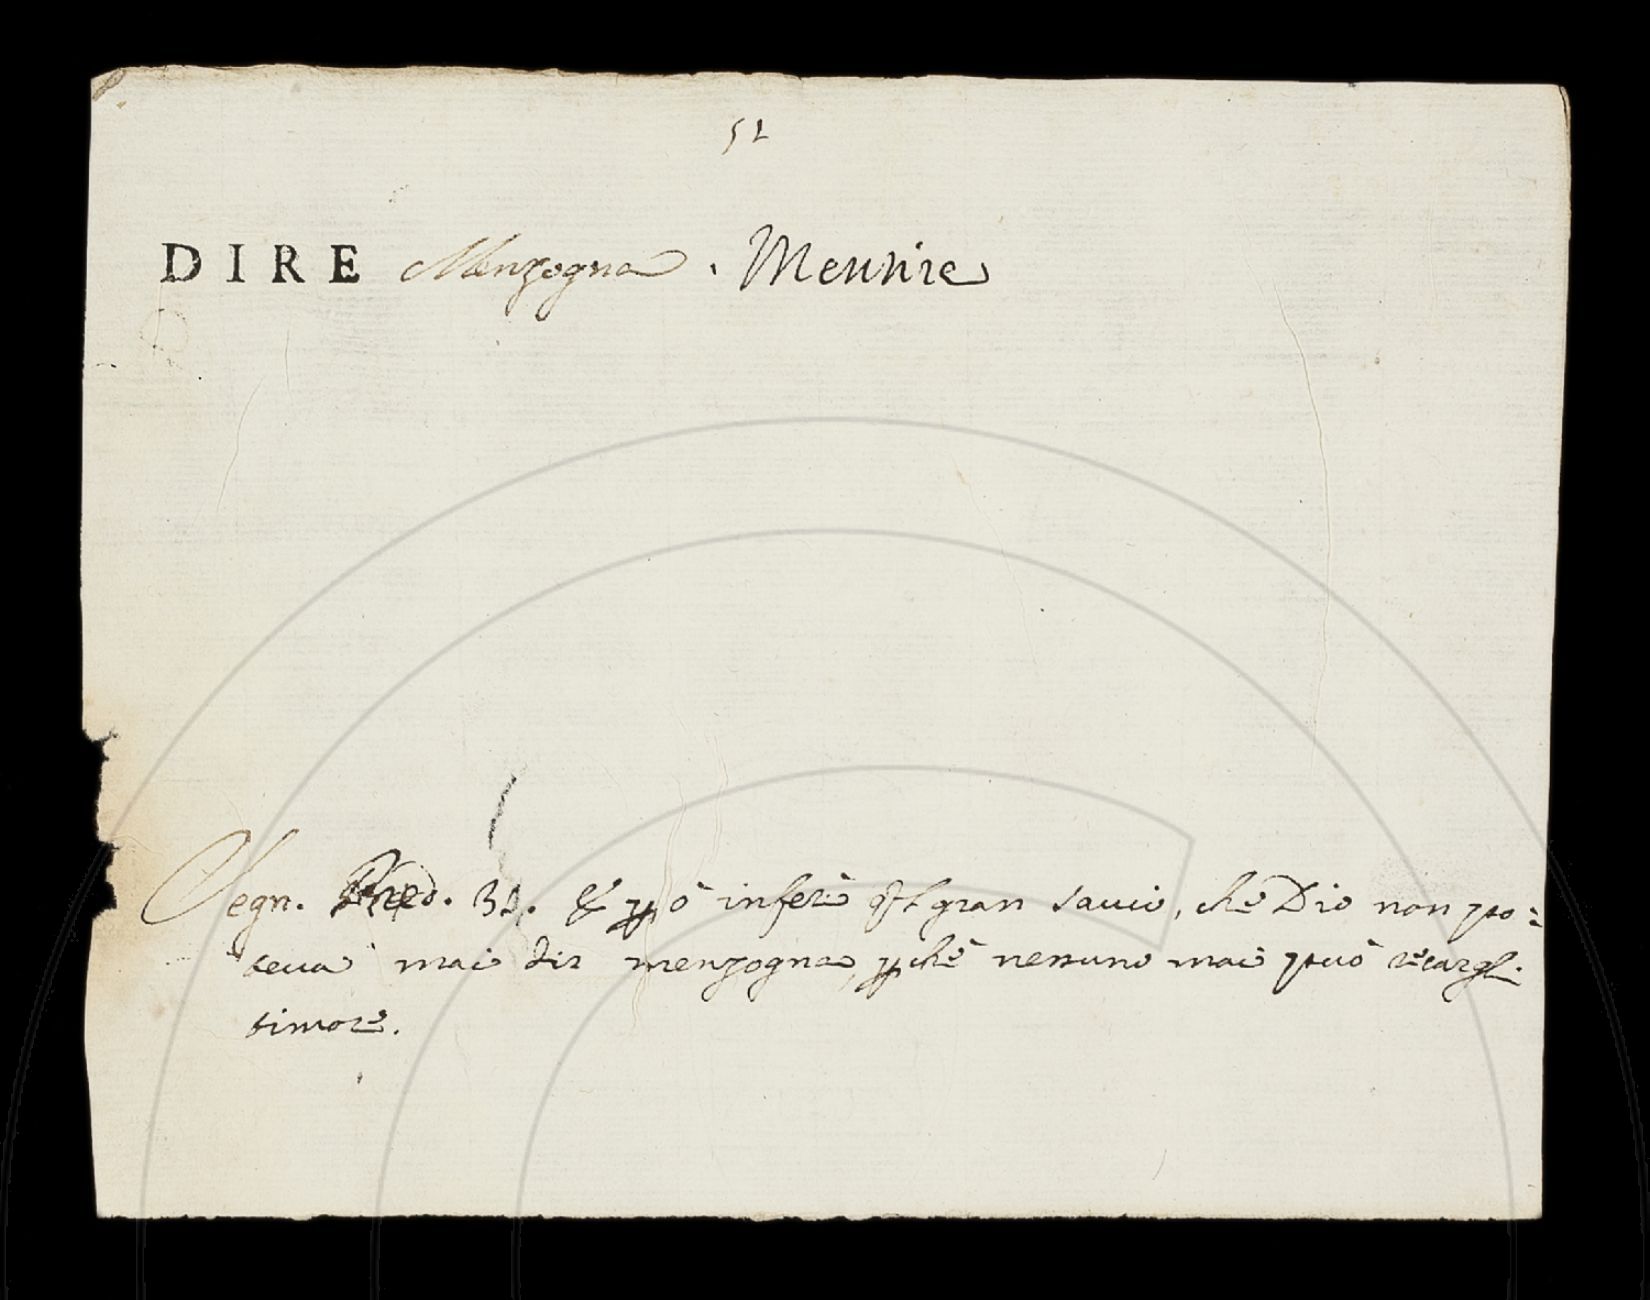 52
DIRE Menzogna. Mentire
Segn. Pred. 32. E però inferì qͭ gran savio, che Dio non po=
teva mai dir menzogna, ꝑchè nessuno mai può recargl.
timore.